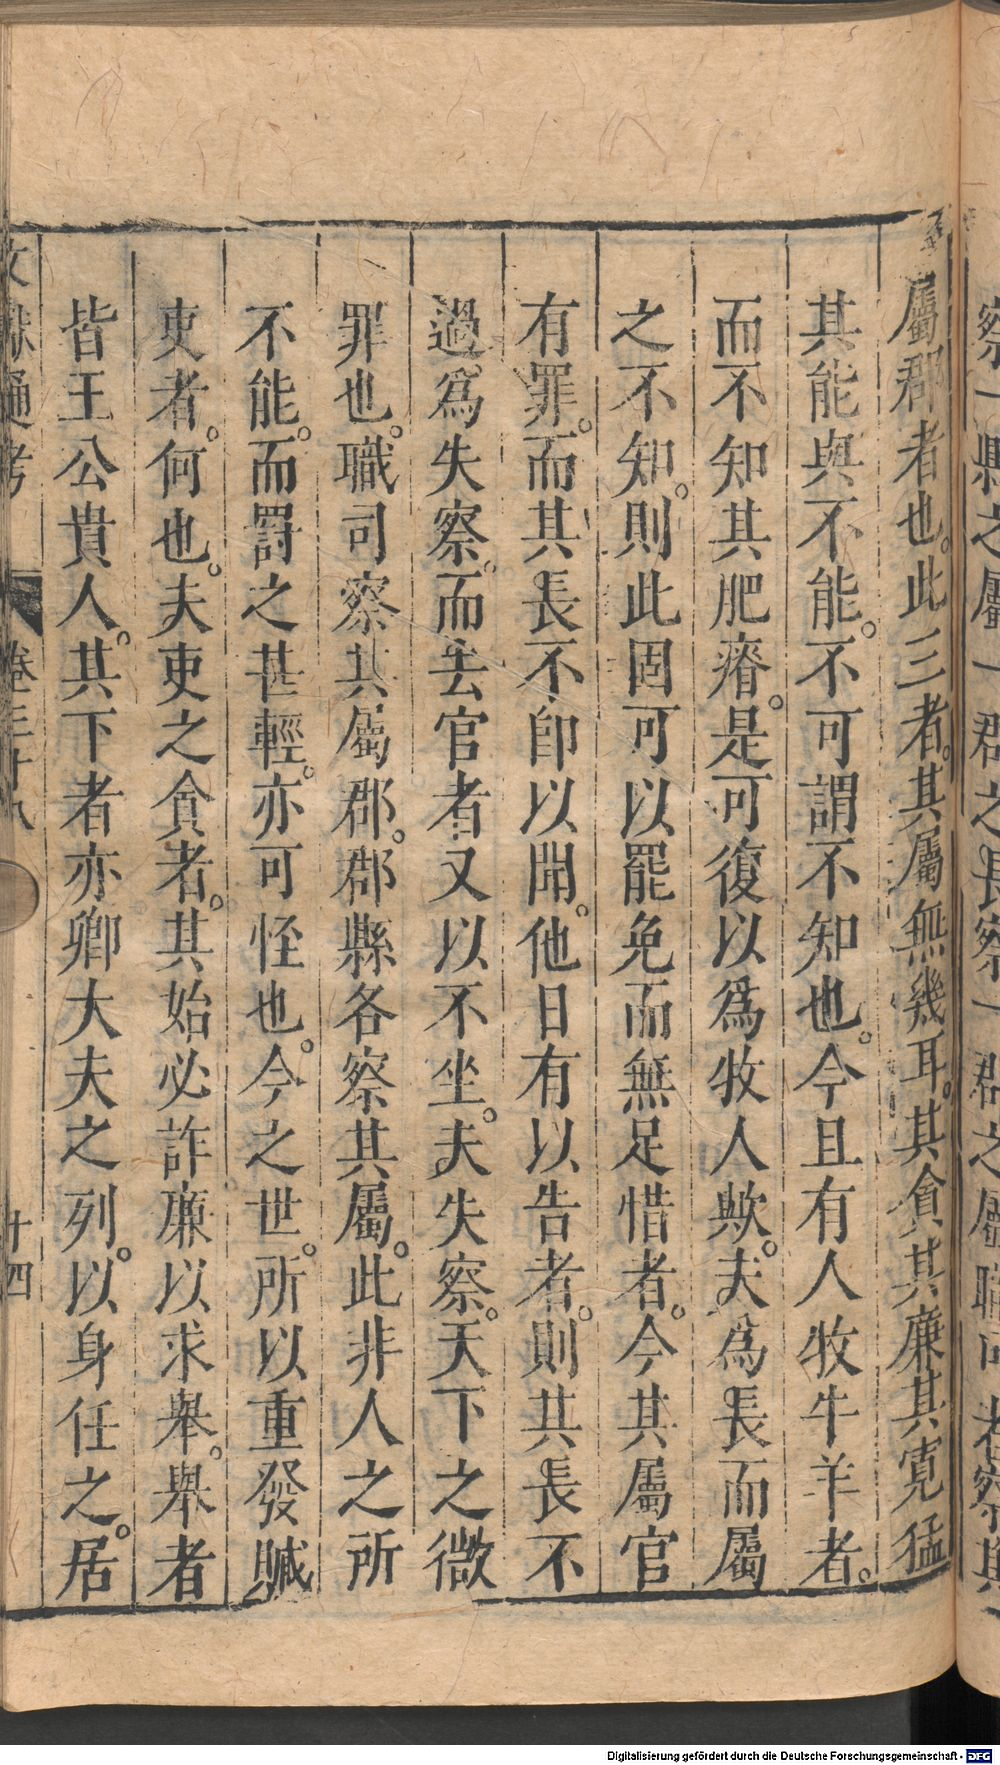 察一縣之屬一郡之長察一郡之屬職司者察其
屬郡者也。此三者。其屬無幾耳。其貪其廉其寛猛
其能與不能。不可謂不知也。今且有人牧牛羊者。
而不知其肥瘠。是可復以爲牧人歟。夫爲長而屬
之不知。則此固可以罷免而無足惜者。今其屬官
有罪。而其長不卽以聞。他日有以告者。則其長不
過爲失察。而去官者又以不坐。夫失察。天下之微
罪也。職司察其屬郡。郡縣各察其屬。此非人之所
不能。而罰之甚輕。亦可怪也。今之世。所以重發贓
吏者。何也。夫吏之貪者。其始必詐廉以求舉。舉者
皆王公貴人。其下者亦卿大夫之列。以身任之。居
文獻通考 卷三十八 十四
Digitalisierung gefördert durch die Deutsche Forschungsgemeinschaft - DFG